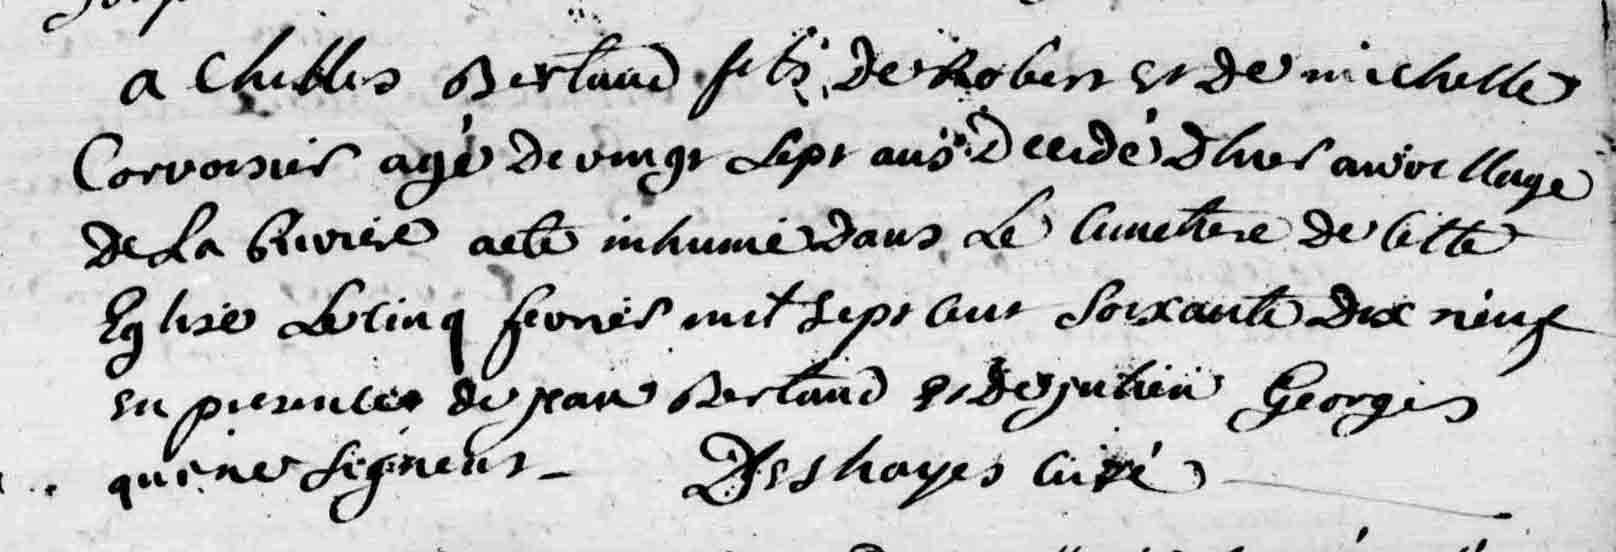 achilles Bertaud fils de Robert et de michelle
Corvoisier agé de vingt sept ans decedé d'hier au village
de La Riviere a eté inhumé dans Le cimetiere de cette
Eglise Le cinq fevrier mil sept cent soixante dix neuf
en presence de jean Bertaud et de julien Georges
qui ne signent Deshayes curé